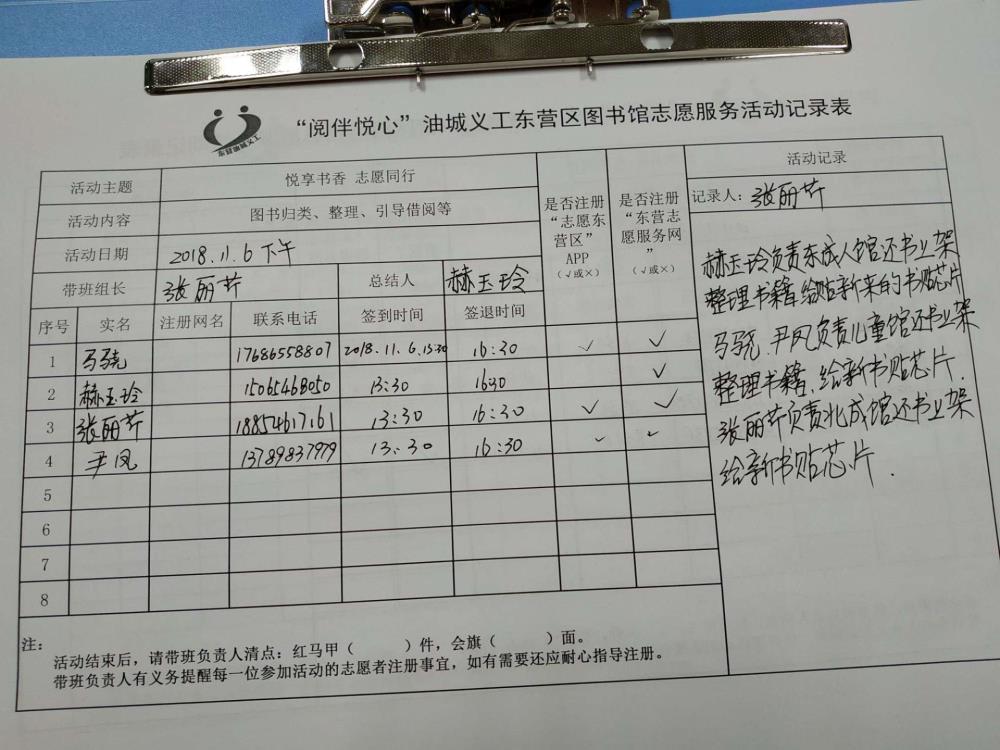 “阅伴悦心”油城义工东营区图书馆志愿服务活动记录表
东营油城义工
活动主题 悦享书香 志愿同行
活动内容 图书归类、整理、引导借阅等
活动日期 2018.11.6下午
带班组长 张丽芹 总结人 赫玉玲
是否注册“志愿东营区”APP（√或×）
是否注册“东营志愿服务网”（√或×）
序号 实名 注册网名 联系电话 签到时间 签退时间
1 马骁 17686558807 2018.11.6,13:30 16:30 √ √
2 赫玉玲 15065468050 13:30 1630 √
3 张丽芹 18854617161 13:30 16:30 √ √
4 尹凤 13789837979 13:30 16:30 √ √
5
6
7
8
活动记录
记录人：张丽芹
赫玉玲负责东成人馆还书上架
整理书籍,给贴新来的书贴芯片
马骁.尹凤负责儿童馆还书上架
整理书籍.给新书贴芯片.
张丽芹负责北成馆还书上架
给新书贴芯片.
注：
活动结束后，请带班负责人清点：红马甲（ ）件，会旗（ ）面。
带班负责人有义务提醒每一位参加活动的志愿者注册事宜，如有需要还应耐心指导注册。